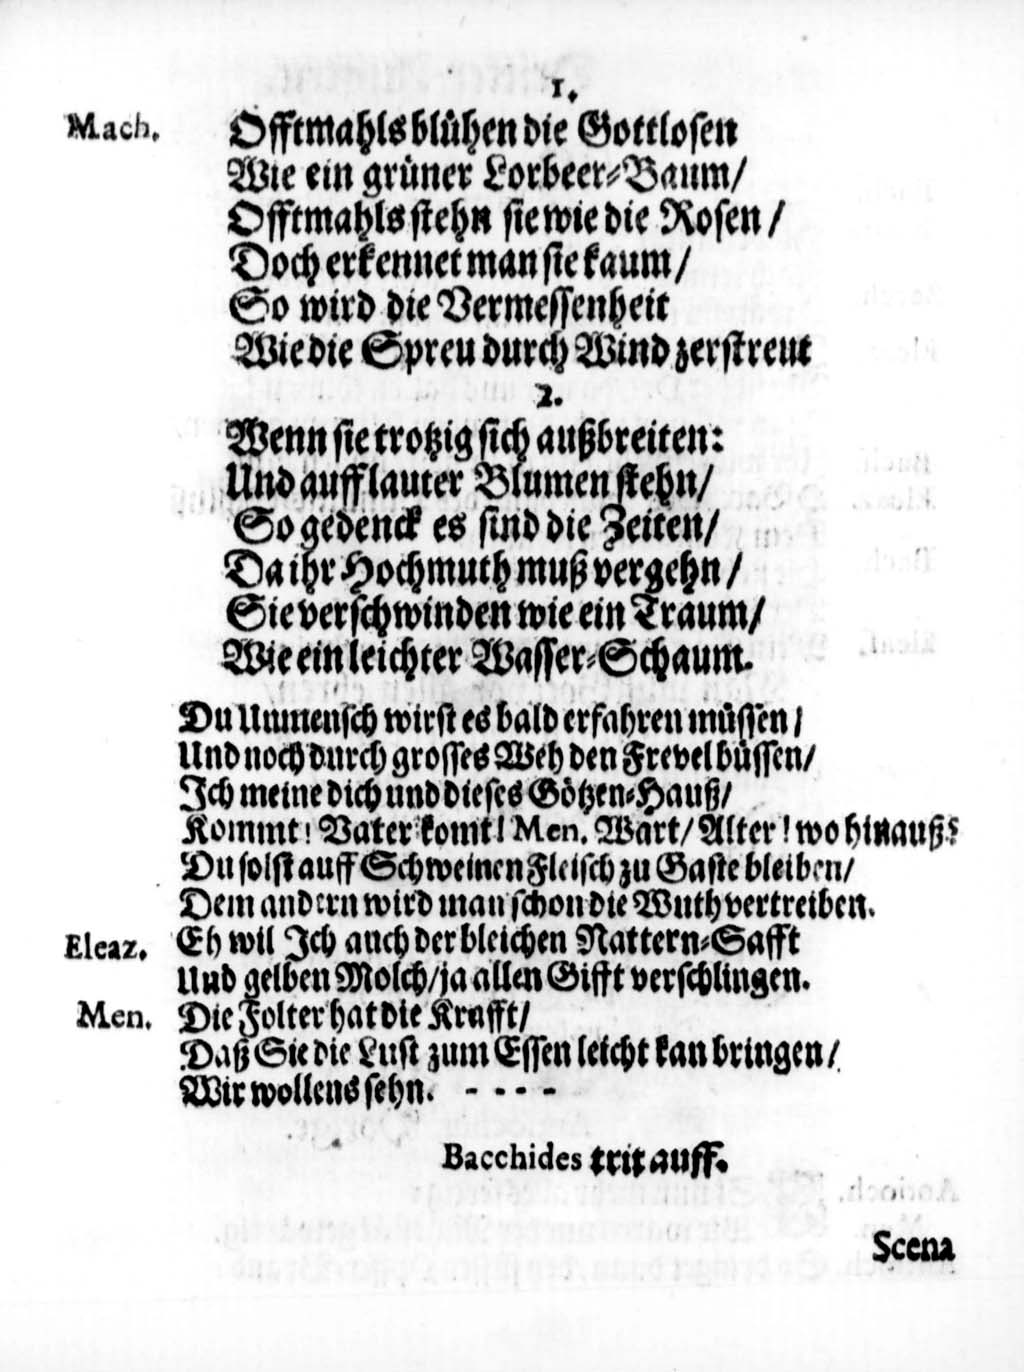 1.
Mach. Offtmahls blühen die Gottlosen
Wie ein grüner Lorbeer-Baum/
Offtmahls stehn sie wie die Rosen/
Doch erkennet man sie kaum/
So wird die Vermessenheit
Wie die Spreu durch Wind zerstreut
2.
Wenn sie trotzig sich außbreiten:
Und auff lauter Blumen stehn/
So gedenck es sind die Zeiten/
Da ihr Hochmuth muß vergehn/
Sie verschwinden wie ein Traum/
Wie ein leichter Wasser-Schaum.
Du Unmensch wirst es bald erfahren müssen/
Und noch durch grosses Weh den Frevel büssen/
Ich meine dich und dieses Götzen-Hauß/
Kommt! Vater komt! Men. Wart/ Alter! wo hinauß?
Du solst auff Schweinen Fleisch zu Gaste bleiben/
Dem andern wird man schon die Wuth vertreiben.
Eleaz. Eh wil Ich auch der bleichen Nattern-Safft
Und gelben Molch/ ja allen Gifft verschlingen.
Men. Die Folter hat die Krafft/
Daß Sie die Lust zum Essen leicht kan bringen/
Wir wollens sehn. - - - -
Bacchides trit auff.
Scena